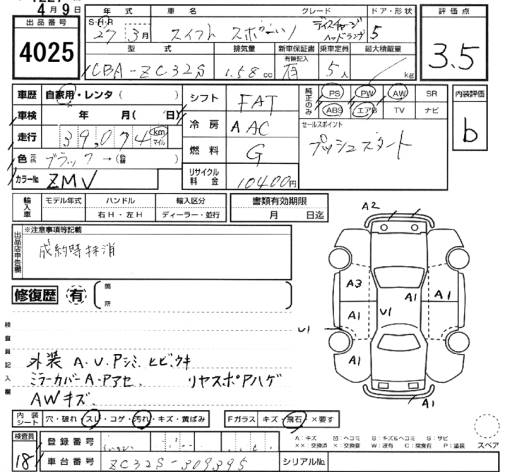 4月9日
年式 車名 グレード ドア・形状 評価点
出品番号 S・H・R 27年 3月 スイフト スポーツ ディスチャージ ヘッドランプ 5
4025
型式 排気量 新車保証書 乗車定員 最大積載量
有無記入
CBA-ZC32S 1.580 有 5人 kg
3.5
車歴 自家用・レンタ ( ) シフト FAT 純正のみ PS PW AW SR 内装評価
車検 年 月 ( 日) 冷房 AAC ABS エアB TV ナビ
走行 39,074 km マイル セールスポイント b
色 ブラック → 燃料 G プッシュスタート
カラーNo. ZMV リサイクル料金 10400円
輸入車 モデル年式 ハンドル 輸入区分 書類有効期限
右H・左H ディーラー・並行 月 日迄
出品店申告欄 ※注意事項等記載
成約時抹消
修復歴 有 箇所
A2
A3 A1 A1
A1 U1 A1
U1
A1
検査員記入欄
外装 A.U.Pシミ ヒビウキ
ミラーカバーA・Pアセ リヤスポPハゲ
AWキズ
内装シート 穴・破れ・スレ・コゲ・汚れ・キズ・黄ばみ Fガラス キズ・飛石・×要す
検査員 登録番号
A:キズ U:ヘコミ B:キズ&ヘコミ S:サビ
××:交換済 X:交換 W:波有 C:腐食有 P:塗装 スペア
18 車台番号 ZC32S-309395 シリアルNo.